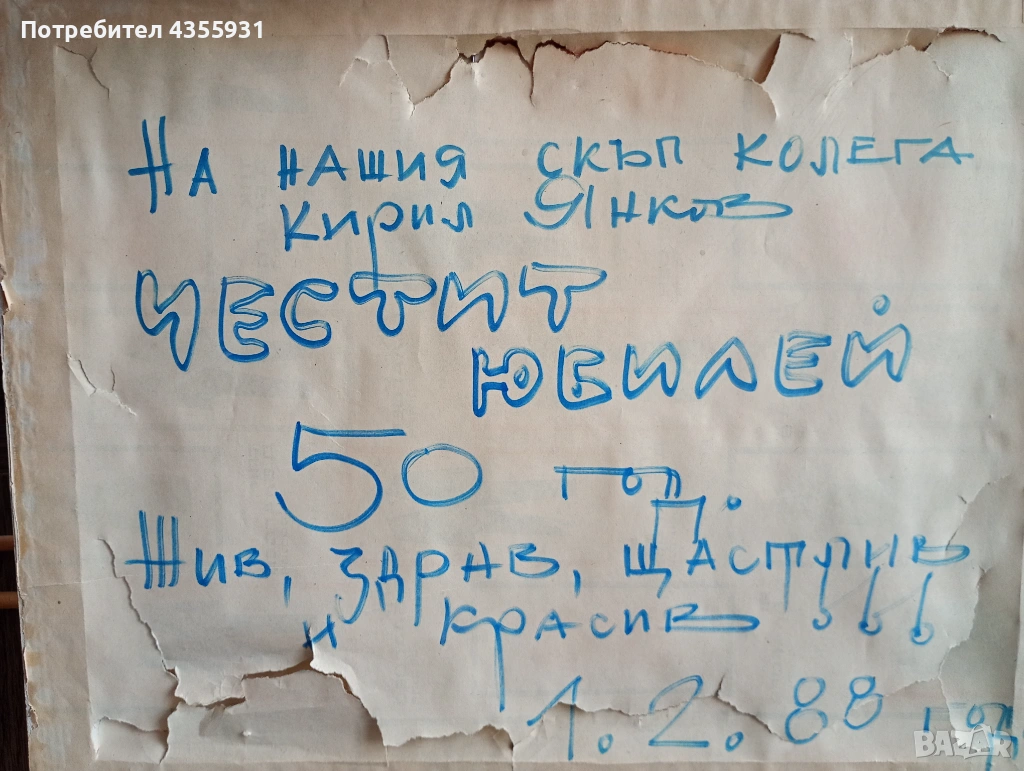 Потребител 4355931
На нашия скъп колега
Кирил Янков
ЧЕСТИТ
ЮБИЛЕЙ
50 год.
Жив, здрав, щастлив
и красив !!!
1.2.88 год
BAZAR